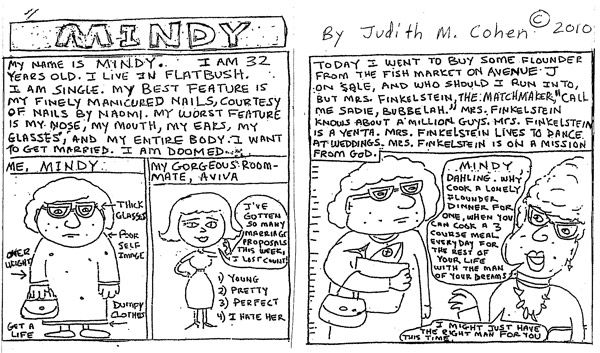 MINDY
By Judith M. Cohen © 2010
MY NAME IS MINDY. I AM 32
YEARS OLD. I LIVE IN FLATBUSH.
I AM SINGLE. MY BEST FEATURE IS
MY FINELY MANICURED NAILS, COURTESY
OF NAILS BY NAOMI. MY WORST FEATURE
IS MY NOSE, MY MOUTH, MY EARS, MY
GLASSES, AND MY ENTIRE BODY. I WANT
TO GET MARRIED. I AM DOOMED...
ME, MINDY
THICK
GLASSES
POOR
SELF
IMAGE
OVER
WEIGHT
DUMPY
CLOTHES
GET A
LIFE
MY GORGEOUS ROOM-
MATE, AVIVA
I'VE
GOTTEN
SO MANY
MARRIAGE
PROPOSALS
THIS WEEK,
I LOST COUNT!
1) YOUNG
2) PRETTY
3) PERFECT
4) I HATE HER
TODAY I WENT TO BUY SOME FLOUNDER
FROM THE FISH MARKET ON AVENUE J
ON SALE, AND WHO SHOULD I RUN INTO,
BUT MRS. FINKELSTEIN, THE MATCHMAKER, "CALL
ME SADIE, BUBBELAH." MRS. FINKELSTEIN
KNOWS ABOUT A MILLION GUYS. MRS. FINKELSTEIN
IS A YENTA. MRS. FINKELSTEIN LIVES TO DANCE
AT WEDDINGS. MRS. FINKELSTEIN IS ON A MISSION
FROM GOD.
MINDY
DAHLING. WHY
COOK A LONELY
FLOUNDER
DINNER FOR
ONE, WHEN YOU
CAN COOK A 3
COURSE MEAL
EVERYDAY FOR
THE REST OF
YOUR LIFE
WITH THE MAN
OF YOUR DREAMS?
I MIGHT JUST HAVE
THE RIGHT MAN FOR YOU
THIS TIME